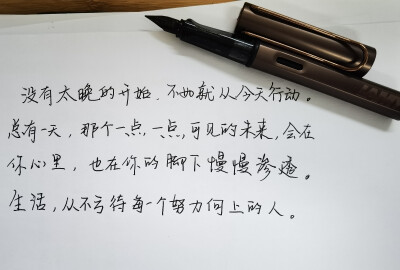 没有太晚的开始,不如就从今天行动。
总有一天,那个一点,一点,可见的未来,会在
你心里,也在你的脚下慢慢渗透。
生活,从不亏待每一个努力向上的人。